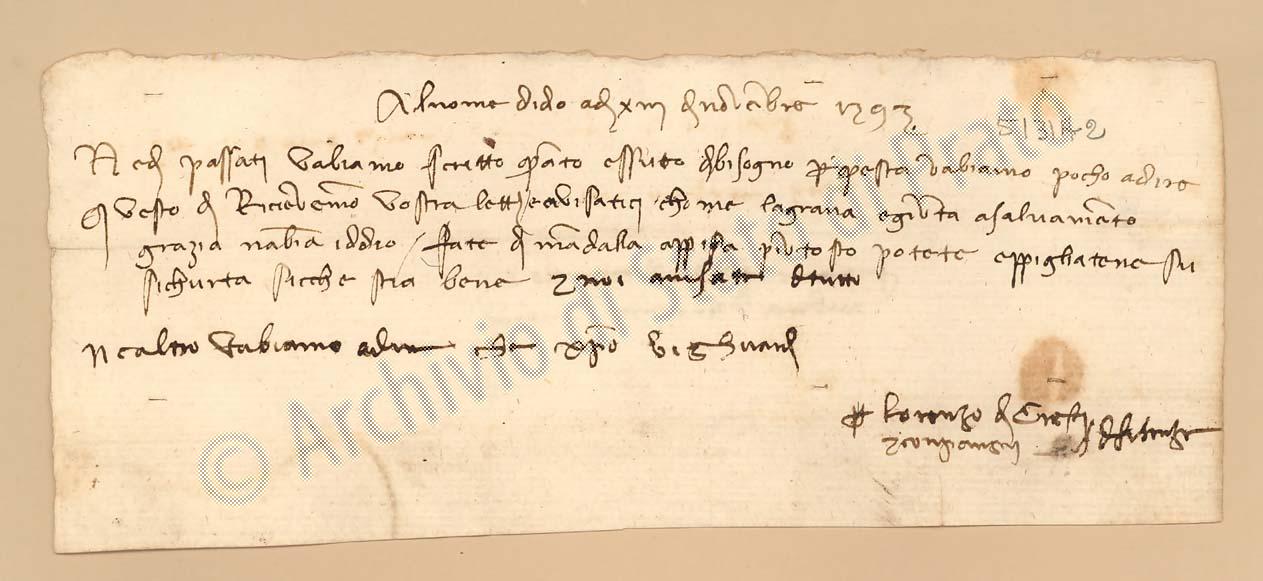 Al nome di dio adi xiii di dicienbre 1393
Ne di passati vabiamo scritto quanto essuto di bisogno per questa vabiamo pocho a dire
Questo di Ricievemo vostra letter e avisatici chome la grana e giunta a salvamento
grazia nabia iddio / fate di mandalla a ppisa piu tosto potete e ppigliatene su
sichurta sicche stia bene e noi avisate di tutto
Ne altro vabiamo a dire che xpo vi ghuardi
per Lorenzo di
e conpangni di firenze
© Archivio di Stato di Prato